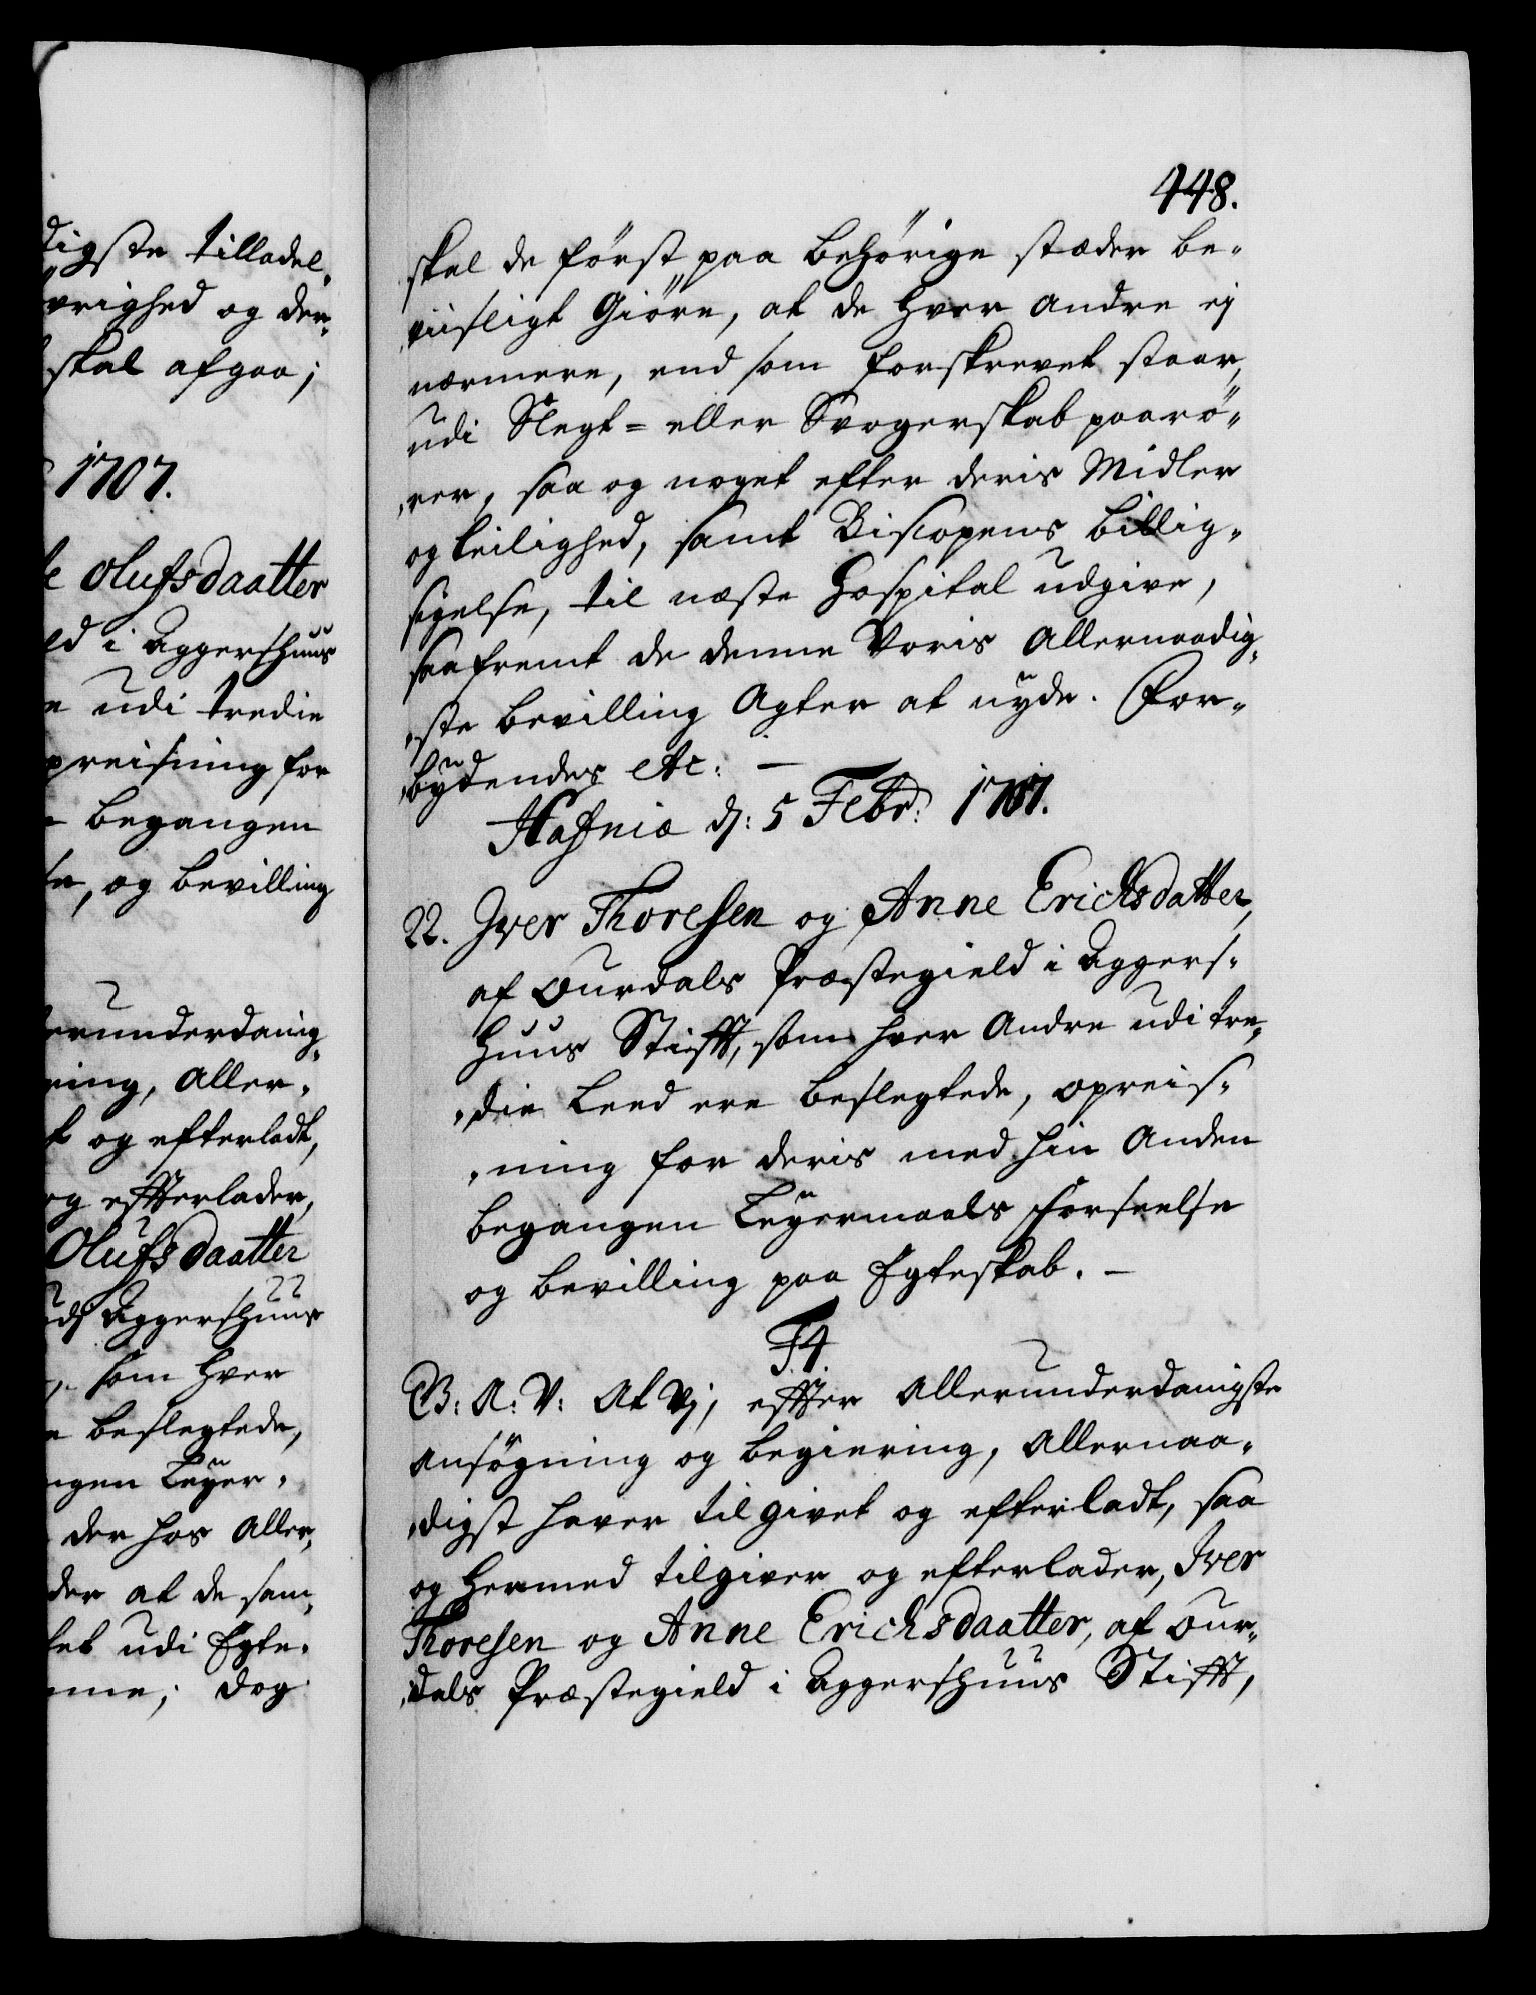 digste tilladel,
vrighed og der,
skal afgaa;
1707.
Olufsdaatter
ld i Aggershuus
udi tredie
preisning for
begangen
og bevilling
erunderdanig,
ring, Aller,
og efterladt,
og effterlader,
Olufsdaatter
Aggershuus
som hver
beslegtede,
ngen Leyer,
der hos Aller,
der at de sam,
udi Egte,
dog
448.
skal de först paa behörige stæder be,
viisligt Giöre, at de hver andre ej
nærmere, end som forskrevet staar,
udi Slegt= eller Svogerskab paarö,
,rer, saa og noget efter deris Midler
og leilighed, samt Biscopens billig,
sigelse, til næste Hospital udgive,
saafremt de denne Voris Allernaadig,
,ste bevilling Agter at nyde. For,
,bydendes etc: —
Hafniæ d: 5 Febr: 1707.
22. Iver Thoresen og Anne Erichsdatter,
af Ourdals Præstegield i Aggers,
huus Stifft, som hver Andre udi tre,
,die Leed ere beslegtede, opreis,
,ning for deris med hin Anden
begangen Leyermaals Forseelse
og bevilling paa Egteskab. —
F4.
G: A: V: At Vj, effter Allerunderdanigste
ansögning og begiering, Allernaa,
,digst haver tilgivet og efterladt, saa
og hermed tilgiver og efterlader, Iver
Thoresen og Anne Erichsdaatter, af Our,
,dals Præstegield i Aggershuus Stifft,